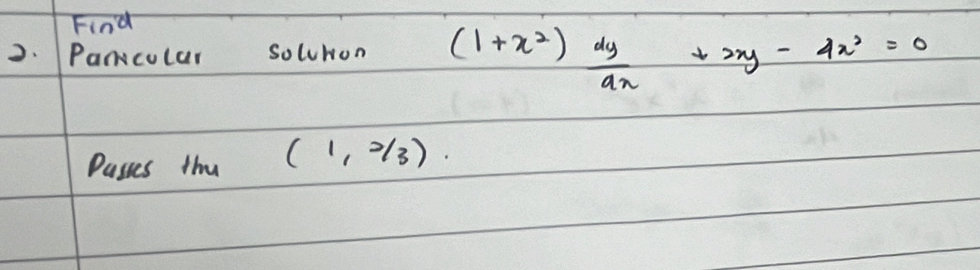 Find
2. Particular solution (1+x²) dy/dx + 2xy - 4x² = 0
Passes thru (1, 2/3).